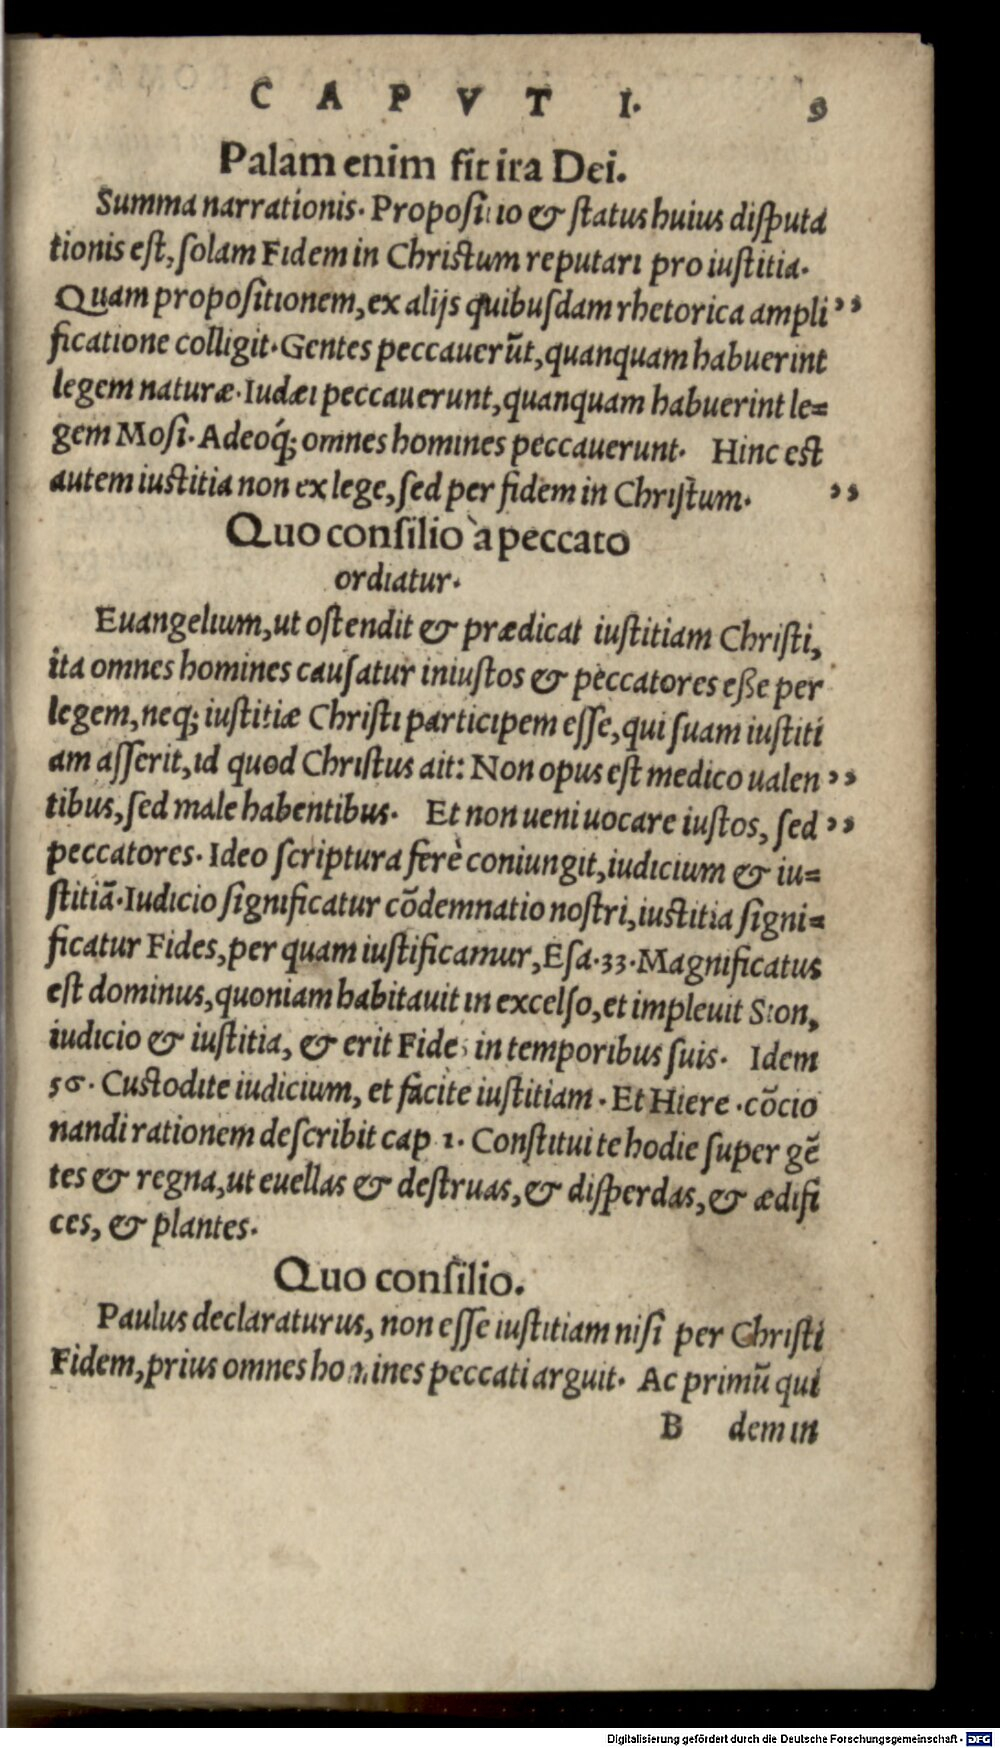 CAPVT I. 9
Palam enim fit ira Dei.
Summa narrationis. Propositio & status huius disputa
tionis est, solam Fidem in Christum reputari pro iustitia.
Quam propositionem, ex alijs quibusdam rhetorica ampli ,,
ficatione colligit. Gentes peccauerũt, quanquam habuerint
legem naturæ. Iudæi peccauerunt, quanquam habuerint le=
gem Mosi. Adeoq́; omnes homines peccauerunt. Hinc est
autem iustitia non ex lege, sed per fidem in Christum. ,,
Quo consilio à peccato
ordiatur.
Euangelium, ut ostendit & prædicat iustitiam Christi,
ita omnes homines causatur iniustos & peccatores eße per
legem, neq; iustitiæ Christi participem esse, qui suam iustiti
am asserit, id quod Christus ait: Non opus est medico ualen ,,
tibus, sed male habentibus. Et non ueni uocare iustos, sed ,,
peccatores. Ideo scriptura ferè coniungit, iudicium & iu=
stitiã. Iudicio significatur cõdemnatio nostri, iustitia signi=
ficatur Fides, per quam iustificamur, Esa. 33. Magnificatus
est dominus, quoniam habitauit in excelso, et impleuit Sion,
iudicio & iustitia, & erit Fides in temporibus suis. Idem
56. Custodite iudicium, et facite iustitiam. Et Hiere. cõcio
nandi rationem describit cap 1. Constitui te hodie super gẽ
tes & regna, ut euellas & destruas, & disperdas, & ædifi
ces, & plantes.
Quo consilio.
Paulus declaraturus, non esse iustitiam nisi per Christi
Fidem, prius omnes homines peccati arguit. Ac primũ qui
B dem in
Digitalisierung gefördert durch die Deutsche Forschungsgemeinschaft - DFG